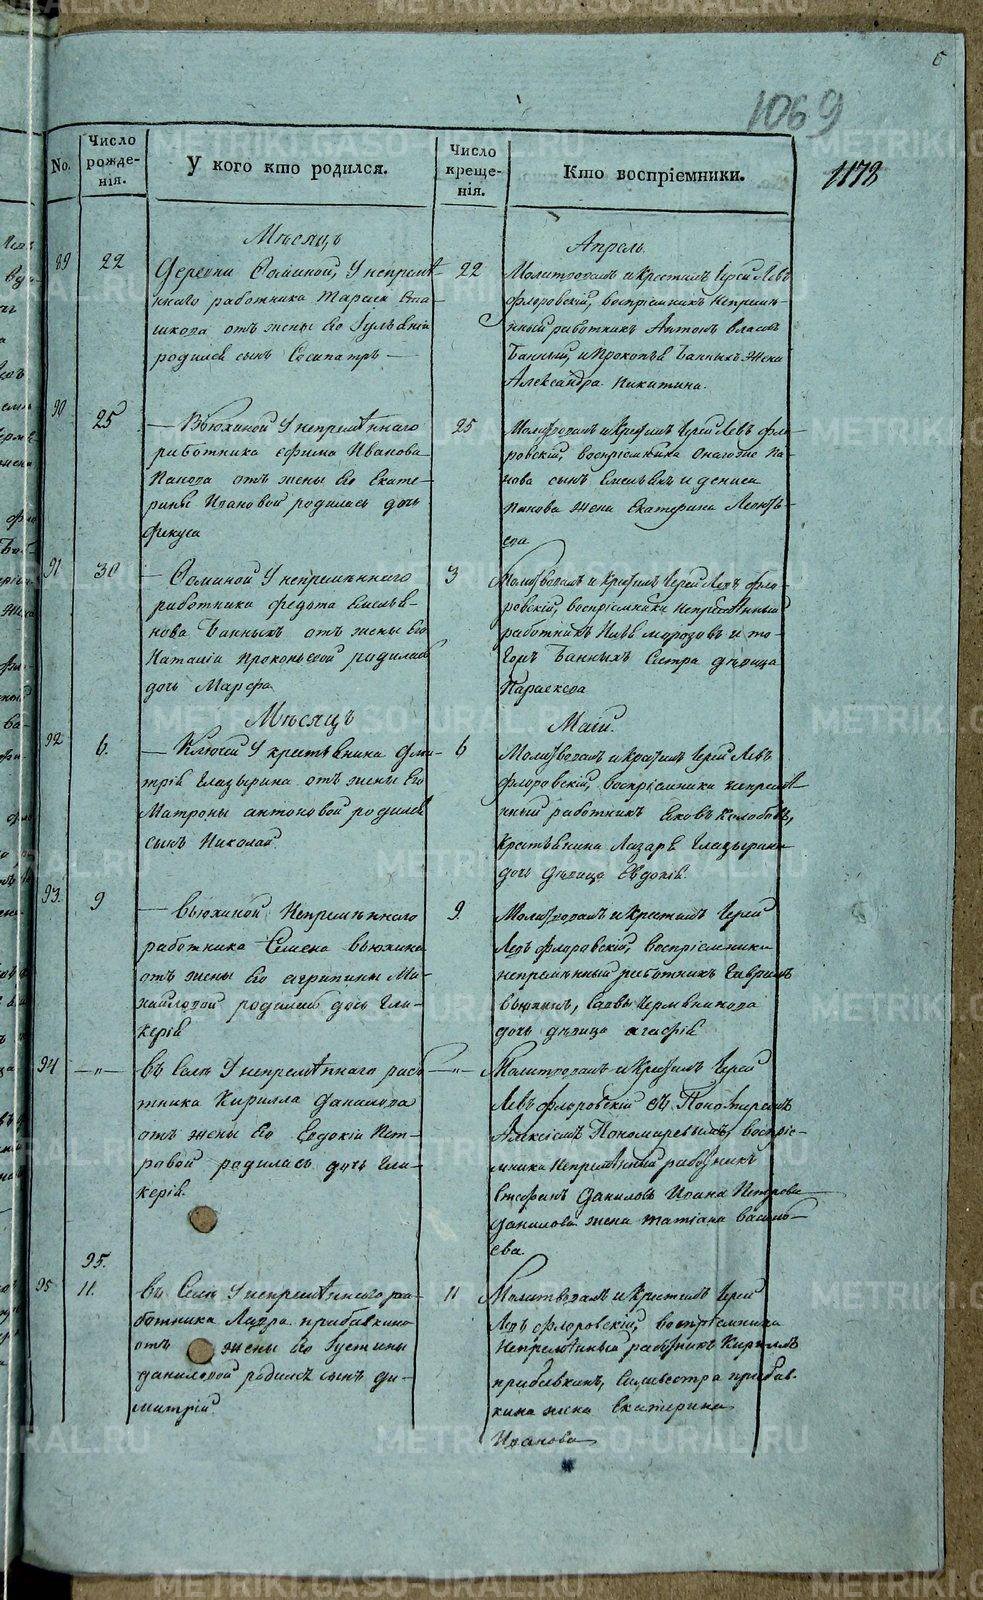 5
1069
1172
No.
Число рожде-нія.
У кого кто родился.
Число креще-нія.
Кто воспріемники.
Мѣсяцъ
Апрель
89
22
Деревни Соминой, У непремѣ-
ннаго работника Тараса
отъ жены его Іульяніи
родился сынъ Сосипатръ —
22
Молитвовалъ и крестилъ Іерей Левъ
Флоровскій, воспріемникъ непремѣ-
нный работникъ Антонъ Власовъ
Банный, и Прокопья Банныхъ жена
Александра Никитина.
90
25
— Вьюхиной У непремѣннаго
работника Ефима Иванова
Панова отъ жены его Екате-
рины Ивановой родилась дочь
Фекуса
25
Молитвовалъ и крестилъ Іерей Левъ Фло-
ровскій, воспріемники онагоже Па-
нова сынъ Емельянъ и Дениса
Панова жена Екатерина Леонтье-
ва
91
30
— Соминой У непремѣннаго
работника Федота Емелья-
нова Банныхъ отъ жены его
Наталіи Прокопьевой родилась
дочь Марфа
3
Молитвовалъ и крестилъ Іерей Левъ Фло-
ровскій, воспріемники непремѣнный
работникъ Илья Морозовъ и то-
гожъ Банныхъ сестра дѣвица
Параскева
Мѣсяцъ
Маій.
92
6.
— Ключей У крестьянина Дми-
трія Глазырина отъ жены его
Матроны Антоновой родился
сынъ Николай
6
Молитвовалъ и крестилъ Іерей Левъ
Флоровскій, воспріемники непремѣ-
нный работникъ Яковъ Колобовъ,
крестьянина Лазаря Глазырина
дочь дѣвица Евдокія
93.
9
— Вьюхиной Непремѣннаго
работника Семена Вьюхина
отъ жены его Агрипины Ми-
хайловой родилась дочь Гли-
керія
9.
Молитвовалъ и крестилъ Іерей
Левъ Флоровскій, воспріемники
непремѣнный работникъ Гаврилъ
Вьюхинъ, Саввы
дочь дѣвица Агафія
94
—"—
Въ Селѣ У непремѣннаго рабо-
тника Кирилла Данилова
отъ жены его Евдокіи Пет-
ровой родилась дочь Гли-
керія.
—"—
Молитвовалъ и крестилъ Іерей
Левъ Флоровскій съ Пономаремъ
Алексѣемъ Пономаревымъ, воспріе-
мники Непремѣнный работникъ
Стефанъ Даниловъ Ивана Петрова
Данилова жена Татіана Василь-
ева.
95.
95
11.
Въ Селѣ У непремѣннаго ра-
ботника Лавра Прибавкина
отъ жены его Іустины
Даниловой родился сынъ Ди-
митрій.
11
Молитвовалъ и крестилъ Іерей
Левъ Флоровскій, воспріемники
Непремѣнный работникъ Кириллъ
Прибавкинъ, Силивестра Прибав-
кина жена Екатерина
Иванова
METRIKI.GASO-URAL.RU